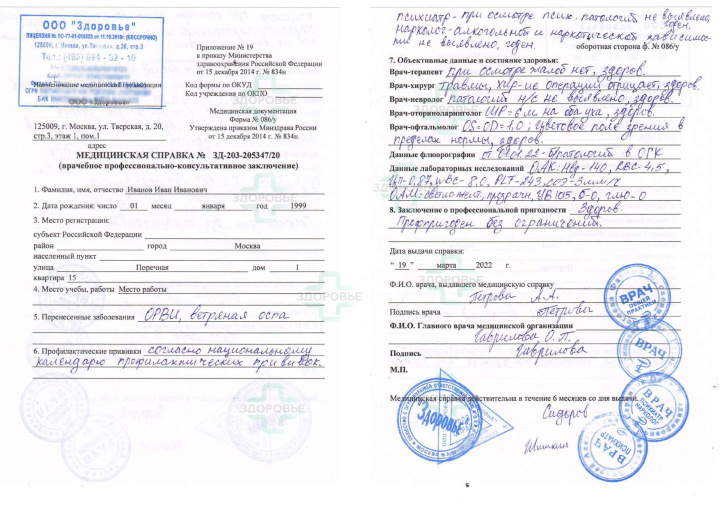 ООО "Здоровье"
ЛИЦЕНЗИЯ ЛО-77-01-016823 от 11.10.2018г (БЕССРОЧНО)
125009, г. Москва, ул.Тверская, д.20, стр.3
Наименование медицинской организации
ООО «Здоровье»
125009, г. Москва, ул. Тверская, д. 20,
стр.3, этаж 1, пом.1
адрес
Приложение № 19
к приказу Министерства
здравоохранения Российской Федерации
от 15 декабря 2014 г. № 834н
Код формы по ОКУД
Код учреждения по ОКПО
Медицинская документация
Форма № 086/у
Утверждена приказом Минздрава России
от 15 декабря 2014 г. № 834н
МЕДИЦИНСКАЯ СПРАВКА № ЗД-203-205347/20
(врачебное профессионально-консультативное заключение)
1. Фамилия, имя, отчество Иванов Иван Иванович
2. Дата рождения: число 01 месяц января год 1999
3. Место регистрации:
субъект Российской Федерации
район город Москва
населенный пункт
улица Поречная дом 1
квартира 15
4. Место учебы, работы Место работы
5. Перенесенные заболевания ОРВИ, ветряная оспа
6. Профилактические прививки согласно национальному
календарю профилактических прививок.
ЗДОРОВЬЕ
ЗДОРОВЬЕ
ЗДОРОВЬЕ
ЗДОРОВЬЕ
психиатр - при осмотре псих. патологий не выявлено,
годен.
нарколог - алкогольной и наркотической зависимос-
ти не выявлено, годен.
оборотная сторона ф. № 086/у
7. Объективные данные и состояние здоровья:
Врач-терапевт при осмотре жалоб нет, здоров.
Врач-хирург травмы, хир-ие операции отрицает, здоров.
Врач-невролог патологий н/с не выявлено, здоров.
Врач-оториноларинголог ШР-6м на оба уха, здоров.
Врач-офтальмолог OS=OD=1,0; цветовое поле зрения в
пределах нормы, здоров.
Данные флюорографии от 01.22 - патологий в ОГК
Данные лабораторных исследований ОАК: Hg-140, RBC-4,5,
WBC-8.0, PLT-243, соэ-3мм/ч
ОАМ: прозрачн, УВ 1015, б-0, глю-0
8. Заключение о профессиональной пригодности Здоров.
Профпригоден без ограничений.
Дата выдачи справки:
" 19 " марта 2022 г.
Ф.И.О. врача, выдавшего медицинскую справку
Петрова А.А.
Подпись врача Петрова
Ф.И.О. Главного врача медицинской организации
Гаврилова О.П.
Подпись Гаврилова
М.П.
Медицинская справка действительна в течение 6 месяцев со дня выдачи.
Сидоров
Шишкин
ВРАЧ
ОБЩЕЙ
ПРАКТИКИ
ВРАЧ
ВРАЧ
ПСИХИАТР
НАРКОЛОГ
ВРАЧ
ПСИХИАТР
Здоровье